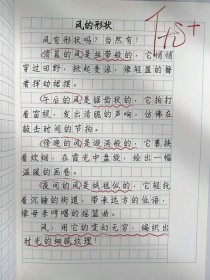 风的形状
风有形状吗？当然有！
清晨的风是丝带般的，它悄悄
穿过田野，掀起麦浪，像轻盈的舞
者挥动裙摆。
午后的风是锯齿状的，它拍打
着窗棂，发出清脆的声响，仿佛在
敲击时间的节拍。
傍晚的风是漩涡般的，它裹挟
着炊烟，在霞光中盘旋，绘出一幅
温暖的画卷。
夜间的风是绒毯似的，它轻抚
着沉睡的街道，带来远方的低语，
像母亲哼唱的摇篮曲。
风，用它的变幻无穷，编织出
时光的细腻纹理！